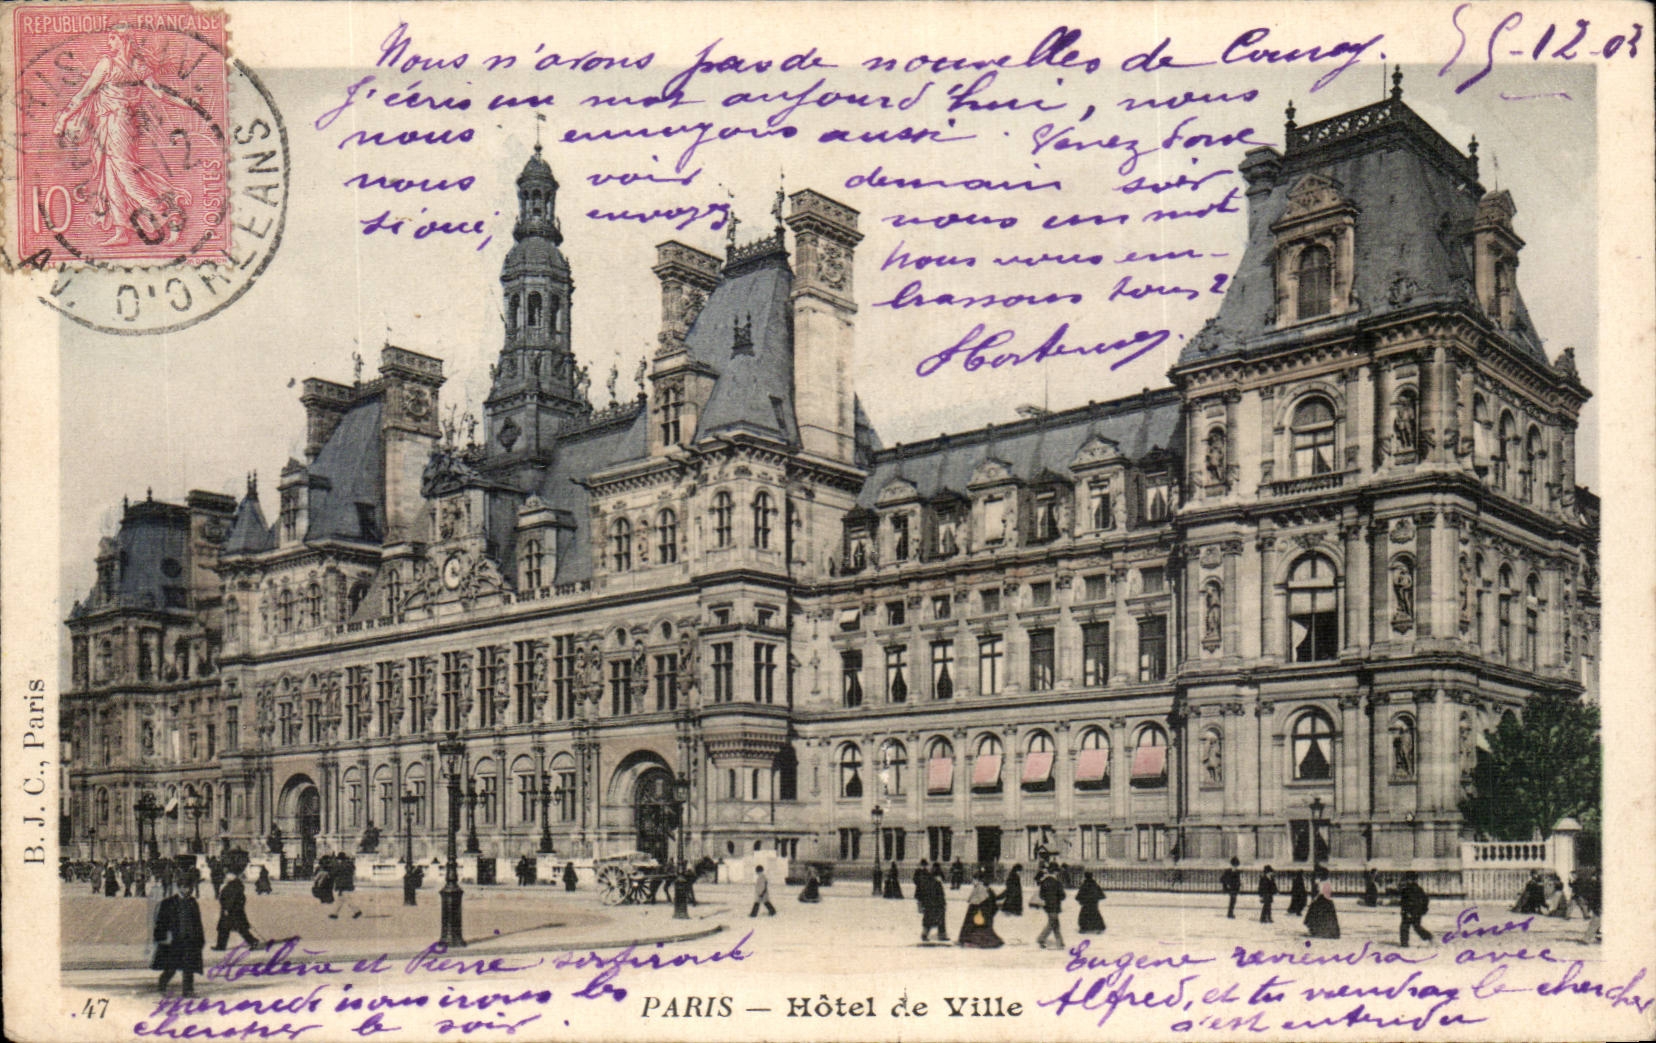 RÉPUBLIQUE FRANÇAISE
10c
POSTES
PARIS
12
03
AV. D'ORLEANS
55-12-03
Nous n'avons pas de nouvelles de
J'écris un mot aujourd'hui, nous
nous ennuyons aussi. Venez donc
nous voir demain soir
si oui, envoyez nous un mot
Nous vous em-
brassons tous
Hortense
B. J. C., Paris
Hélène et Pierre sortiront
mercredi nous irons les
chercher le soir.
47
PARIS — Hôtel de Ville
dîner
Eugène reviendra avec
Alfred, et tu viendras le chercher
c'est entendu